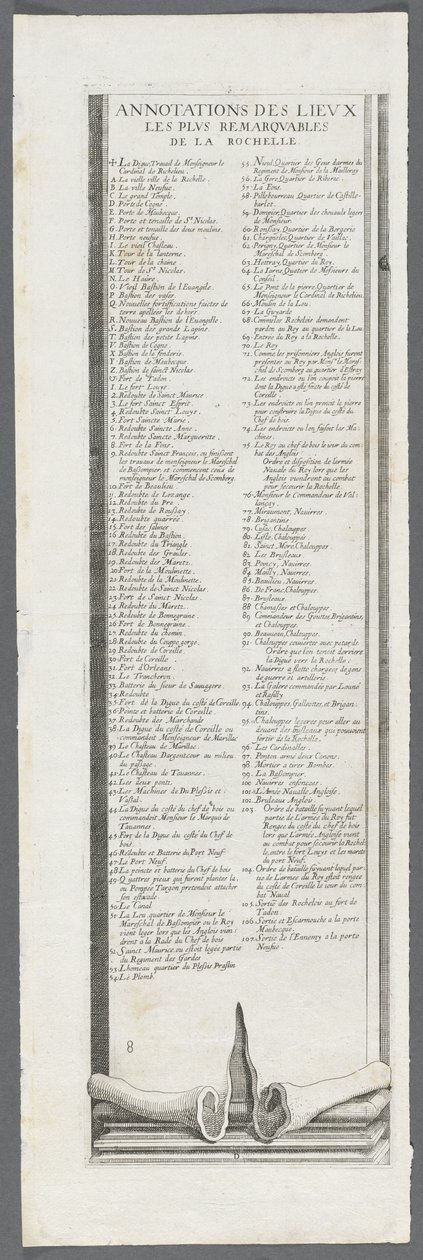 ANNOTATIONS DES LIEVX
LES PLVS REMARQVABLES
DE LA ROCHELLE
La Digue, Travail de Monseigneur le
Cardinal de Richelieu.
A. La vieille ville de la Rochelle.
B. La ville Neufue.
C. Le grand Temple.
D. Porte de Cogne.
E. Porte de Maubecque.
F. Porte et tenaille de St. Nicolas.
G. Porte et tenaille des deux moulins.
H. Porte neufue.
I. Le vieil Chasteau.
K. Tour de la lanterne.
L. Tour de la chaine
M. Tour de St. Nicolas.
N. Le Haure
O. Vieil Bastion de l'Euangile.
P. Bastion des vases.
Q. Nouuelles fortifications faictes de
terre apellées les dehors.
R. Nouueau Bastion de l'Euangille.
S. Bastion des grands Lapins.
T. Bastion des petits Lapins
V. Bastion de Cogne
X. Bastion de la fonderie.
Y. Bastion de Maubecque
Z. Bastion de sainct Nicolas
Fort de Tadon.
1. Le fort Louys.
2. Redoubte de Sainct Maurice
3. Le fort Sainct Esprit.
4. Redoubte Sainct Louys.
5. Fort Saincte Marie.
6. Redoubte Saincte Anne.
7. Redoubte Saincte Marguerite.
8. Fort de la Fons.
9. Redoubte Sainct François, ou finissent
les trauaux de monseigneur le Mareschal
de Bassompier, et commencent ceux de
monseigneur le Mareschal de Scomberg.
10. Fort de Beaulieu
11. Redoubte de Lozange.
12. Redoubte du Pré
13. Redoubte de Ronsay.
14. Redoubte quarrée
15. Fort des salines
16. Redoubte du Bastion.
17. Redoubte du Triangle.
18. Redoubte des
19. Redoubte des Maretz.
20. Fort de la Moulinette.
21. Redoubte de la Moulinette.
22. Redoubte de Sainct Nicolas.
23. Fort de Sainct Nicolas
24. Redoubte du Maretz.
25. Redoubte de Bonnegraine
26. Fort de Bonnegraine
27. Redoubte du chemin
28. Redoubte du Couppe gorge.
29. Redoubte de Coreille
30. Fort de Coreille
31. Fort d'Orleans
32. Le Trancheron
33. Batterie du sieur de
34. Redoubte
35. Fort de la Digue du costé de Coreille
36. Pointe et batterie de Coreille
37. Redoubte des Marchands
38. La Digue du costé de Coreille ou
commandoit Monseigneur de Marillac
39. Le Chasteau de Marillac.
40. Le Chasteau Dargencour au milieu
du passage.
41. Le Chasteau de Touannes.
42. Les deux ponts.
43. Les Machines de Du Plessis et
44. La Digue du costé du chef de bois ou
commandoit Monsieur le Marquis de
Touannes.
45. Fort de la Digue du costé du Chef de
bois.
46. Redoubte et Batterie du Port Neuf
47. Le Port Neuf.
48. La poincte et batterie du Chef de bois
49. Quattres pieux qui furent plantes la,
ou Pompée Targon pretendoit attacher
son estacade
50. Le Canal
51. La Leu, quartier de Monsieur le
Mareschal de Bassompier ou le Roy
vient loger lors que les Anglois vin-
drent à la Rade du Chef de bois
52. Sainct Maurice, ou estoit logée partie
du Regiment des Gardes
53. Lhomeau quartier du Plessis Praslin
54. Le Plomb.
55. Nieul, Quartier des Gens darmes du
Regiment de Monsieur de la Meilleray
56. La Gore, Quartier de Riberac.
57. La Fons.
58. Pilleboureau Quartier de Castille-
barlot.
59. Dompier, Quartier des cheuaulx legers
de Monsieur
60. Ronsay, Quartier de la Bergerie
61. Charguolet, Quartier de Vaillac.
62. Perigny, Quartier de Monsieur le
Mareschal de Scomberg.
63. Hestray, Quartier du Roy.
64. La Iarne, Quatier de Messieurs du
Conseil.
65. Le Pont de la pierre, Quartier de
Monseigneur le Cardinal de Richelieu.
66. Moulin de la Leu.
67. La Guyarde
68. Comme les Rochelois demandent
pardon au Roy au quartier de la Leu.
69. Entrée du Roy a la Rochelle.
70. Le Roy
71. Comme les prisonniers Anglois furent
presentes au Roy par Monsr. le Mares-
chal de Scomberg au quartier d'Estray
72. Les endroicts ou lon couppit la pierre
dont la Digue a esté faicte du costé de
Coreille
73. Les endroicts ou lon prenoit la pierre
pour construire la Digue du costé du
Chef de bois
74. Les endroicts ou lon faisoit les Ma-
chines.
75. Le Roy au chef de bois le iour du com-
bat des Anglois
Ordre et disposition de larmée
Nauale du Roy lors que les
Anglois viendront au combat
pour secourir la Rochelle.
76. Monsieur le Commandeur de Val-
lançay.
77. Miraumont, Nauirres.
78. Brigantins
79. Cusac, Chalouppes
80. Lisle, Chalouppes
81. Sainct More, Chalouppes
82. Les Brusleaux
83. Poincy, Nauirres.
84. Mailly, Nauirres.
85. Beaulieu, Nauirres
86. De Franc, Chalouppes.
87. Brusleaux.
88. Chamasée et Chalouppes.
89. Commandeur des Gouttes, Brigantins,
et Chalouppes.
90. Beauuom, Chalouppes.
91. Chalouppes couuertes auec petarde.
Ordre que lon tenoit derriere
la Digue vers la Rochelle.
92. Nauirres a flotte chargees de gens
de guerre et artillerie
93. La Galere commandée par Launé
et Rasilly
94. Chalouppes, Galliottes, et Brigan-
tins.
95. Chalouppes legeres pour aller au
deuant des brusleaux qui pouuoient
sortir de la Rochelle.
96. Les Cardinalles.
97. Ponton armé deux Canons.
98. Mortier a tirer Bombes.
99. La Bassompier.
100. Nauirres enfoncees
101. L'Armée Naualle Angloise.
102. Brusleaux Anglois.
103. Ordre de bataille suyuant lequel
partie de L'armée du Roy fut
Rangée du costé du chef de bois
lors que L'armée Angloise vient
au combat pour secourir la Rochel-
le, entre le fort Louys et les marets
du port Neuf.
104. Ordre de bataille suyuant lequel par-
tie de L'armée du Roy estoit rangée
du costé de Coreille le iour du com-
bat Naual
105. Sortie des Rochelois au fort de
Tadon
106. Sortie et Escarmouche a la porte
Maubecque.
107. Sortie de l'Ennemy a la porte
Neufue
8
D